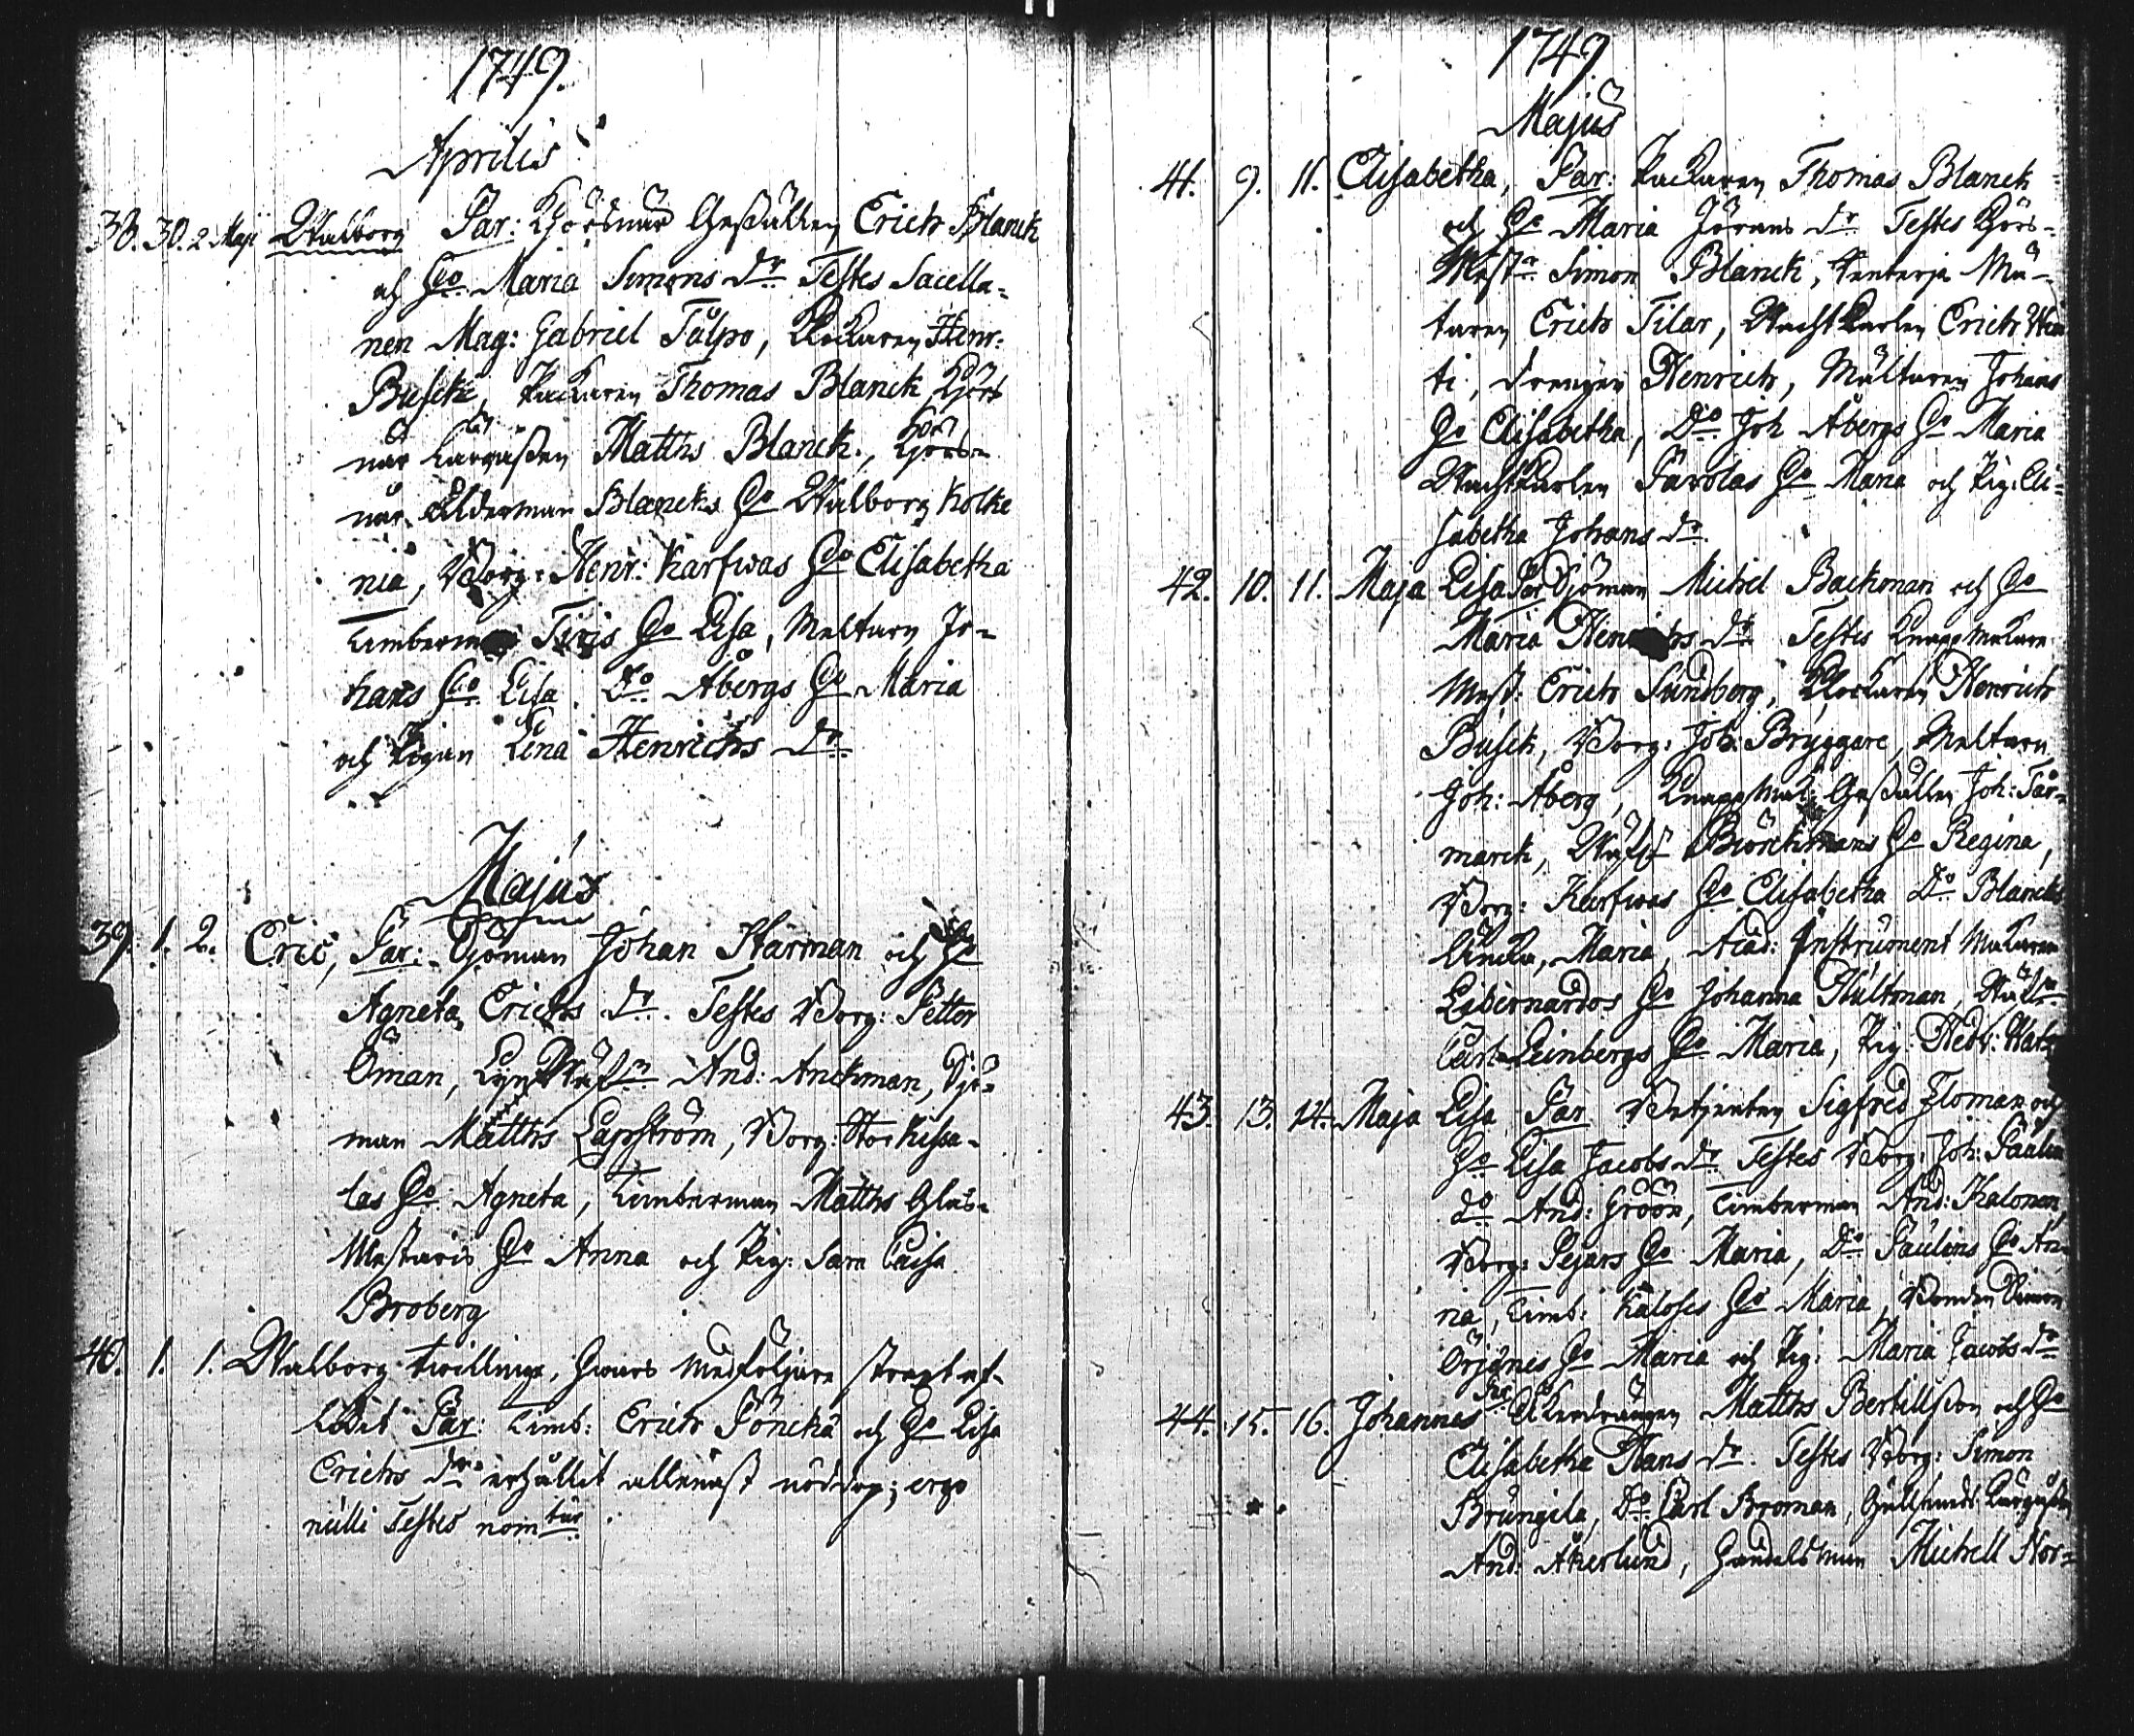 1749.
Aprilis
38. 30. 2 Maji Walborg Par: Körsnär Gesällen Erich Blanck
och Ho Maria Simons dr Testes Sacella-
nen Mag: Gabriel Tålpo, Klockaren Henr:
Busck, Packaren Thomas Blanck, Körs
när Matths Blanck., Körs-
när Ålderman Blancks Ho Walborg Kolke
nia, Borg: Henr: Karfwas Ho Elisabetha
Timberm Ho Lisa, Meltarn Jo-
hans Ho Lisa Do Åbergs Ho Maria
och Pigan Lena Henrichs dr
Majus
39. 1. 2. Eric, Par: Sjöman Johan Harman och Ho
Agneta Erichs dr. Testes Borg: Petter
Öman, And: Anckman, Sjö-
man Matths Lapström, Borg: Stockissa-
las Ho Agneta, Timberman Matths Glas-
Mestaris Ho Anna och Pig: Sara Caisa
Broberg
40. 1. 1. Walborg twillinge, hwars Medföljare straxt af-
ledit Par: Timb: Erich Pönckä och Ho Lisa
Erichs dr erhållit allenast nöddop; ergo
nulli Testes nomtur.
1749
Majus
41. 9. 11. Elisabetha, Par: Packaren Thomas Blanck
och Ho Maria Jörans dr Testes Körs-
Mestr Simon Blanck, Mu-
raren Erich Tilar, Wachtkarlen Erich
ti, drengen Henrich, Mältaren Johans
Ho Elisabetha, Do Joh Åbergs Ho Maria
Wachtkarlen Pavolas Ho Maria och Pig: Eli-
sabetha Johans dr
42. 10. 11. Maja Lisa Par Sjöman Michel Backman och Ho
Maria Henrichs dr Testes Knappmakare
Mest: Erich Sundberg, Klockaren Henrich
Busck, Borg: Joh: Bryggare, Meltarn
Joh: Åberg, Knappmak: Gesällen Joh: Tår-
marck, Björckmans Ho Regina,
Borg: Karfwas Ho Elisabetha Do Blancks
Enka, Maria, Acad: Instrument Makaren
Leibernardos Ho Johanna Hultman,
Carl Leinbergs Ho Maria, Pig: Hedv:
43. 13. 14. Maja Lisa Par Betjenten Sigfred Floman och
Ho Lisa Jacobs dr Testes Borg: Joh: Paulin
do And: Gröön, Timberman And: Kalonen,
Borg: Pejars Ho Maria, Do Paulins Ho An-
na, Timb: Kaloses Ho Maria, Bonden Simon
Örjänes Ho Maria och Pig: Maria Jacobs dr
44. 15. 16. Johannes Par Åkerdrängen Matths Bertillson och Ho
Elisabetha Hans dr. Testes Borg: Simon
Brungila, Do Carl Broman,
And: Åkerlund, Handelsman Michell Nor-